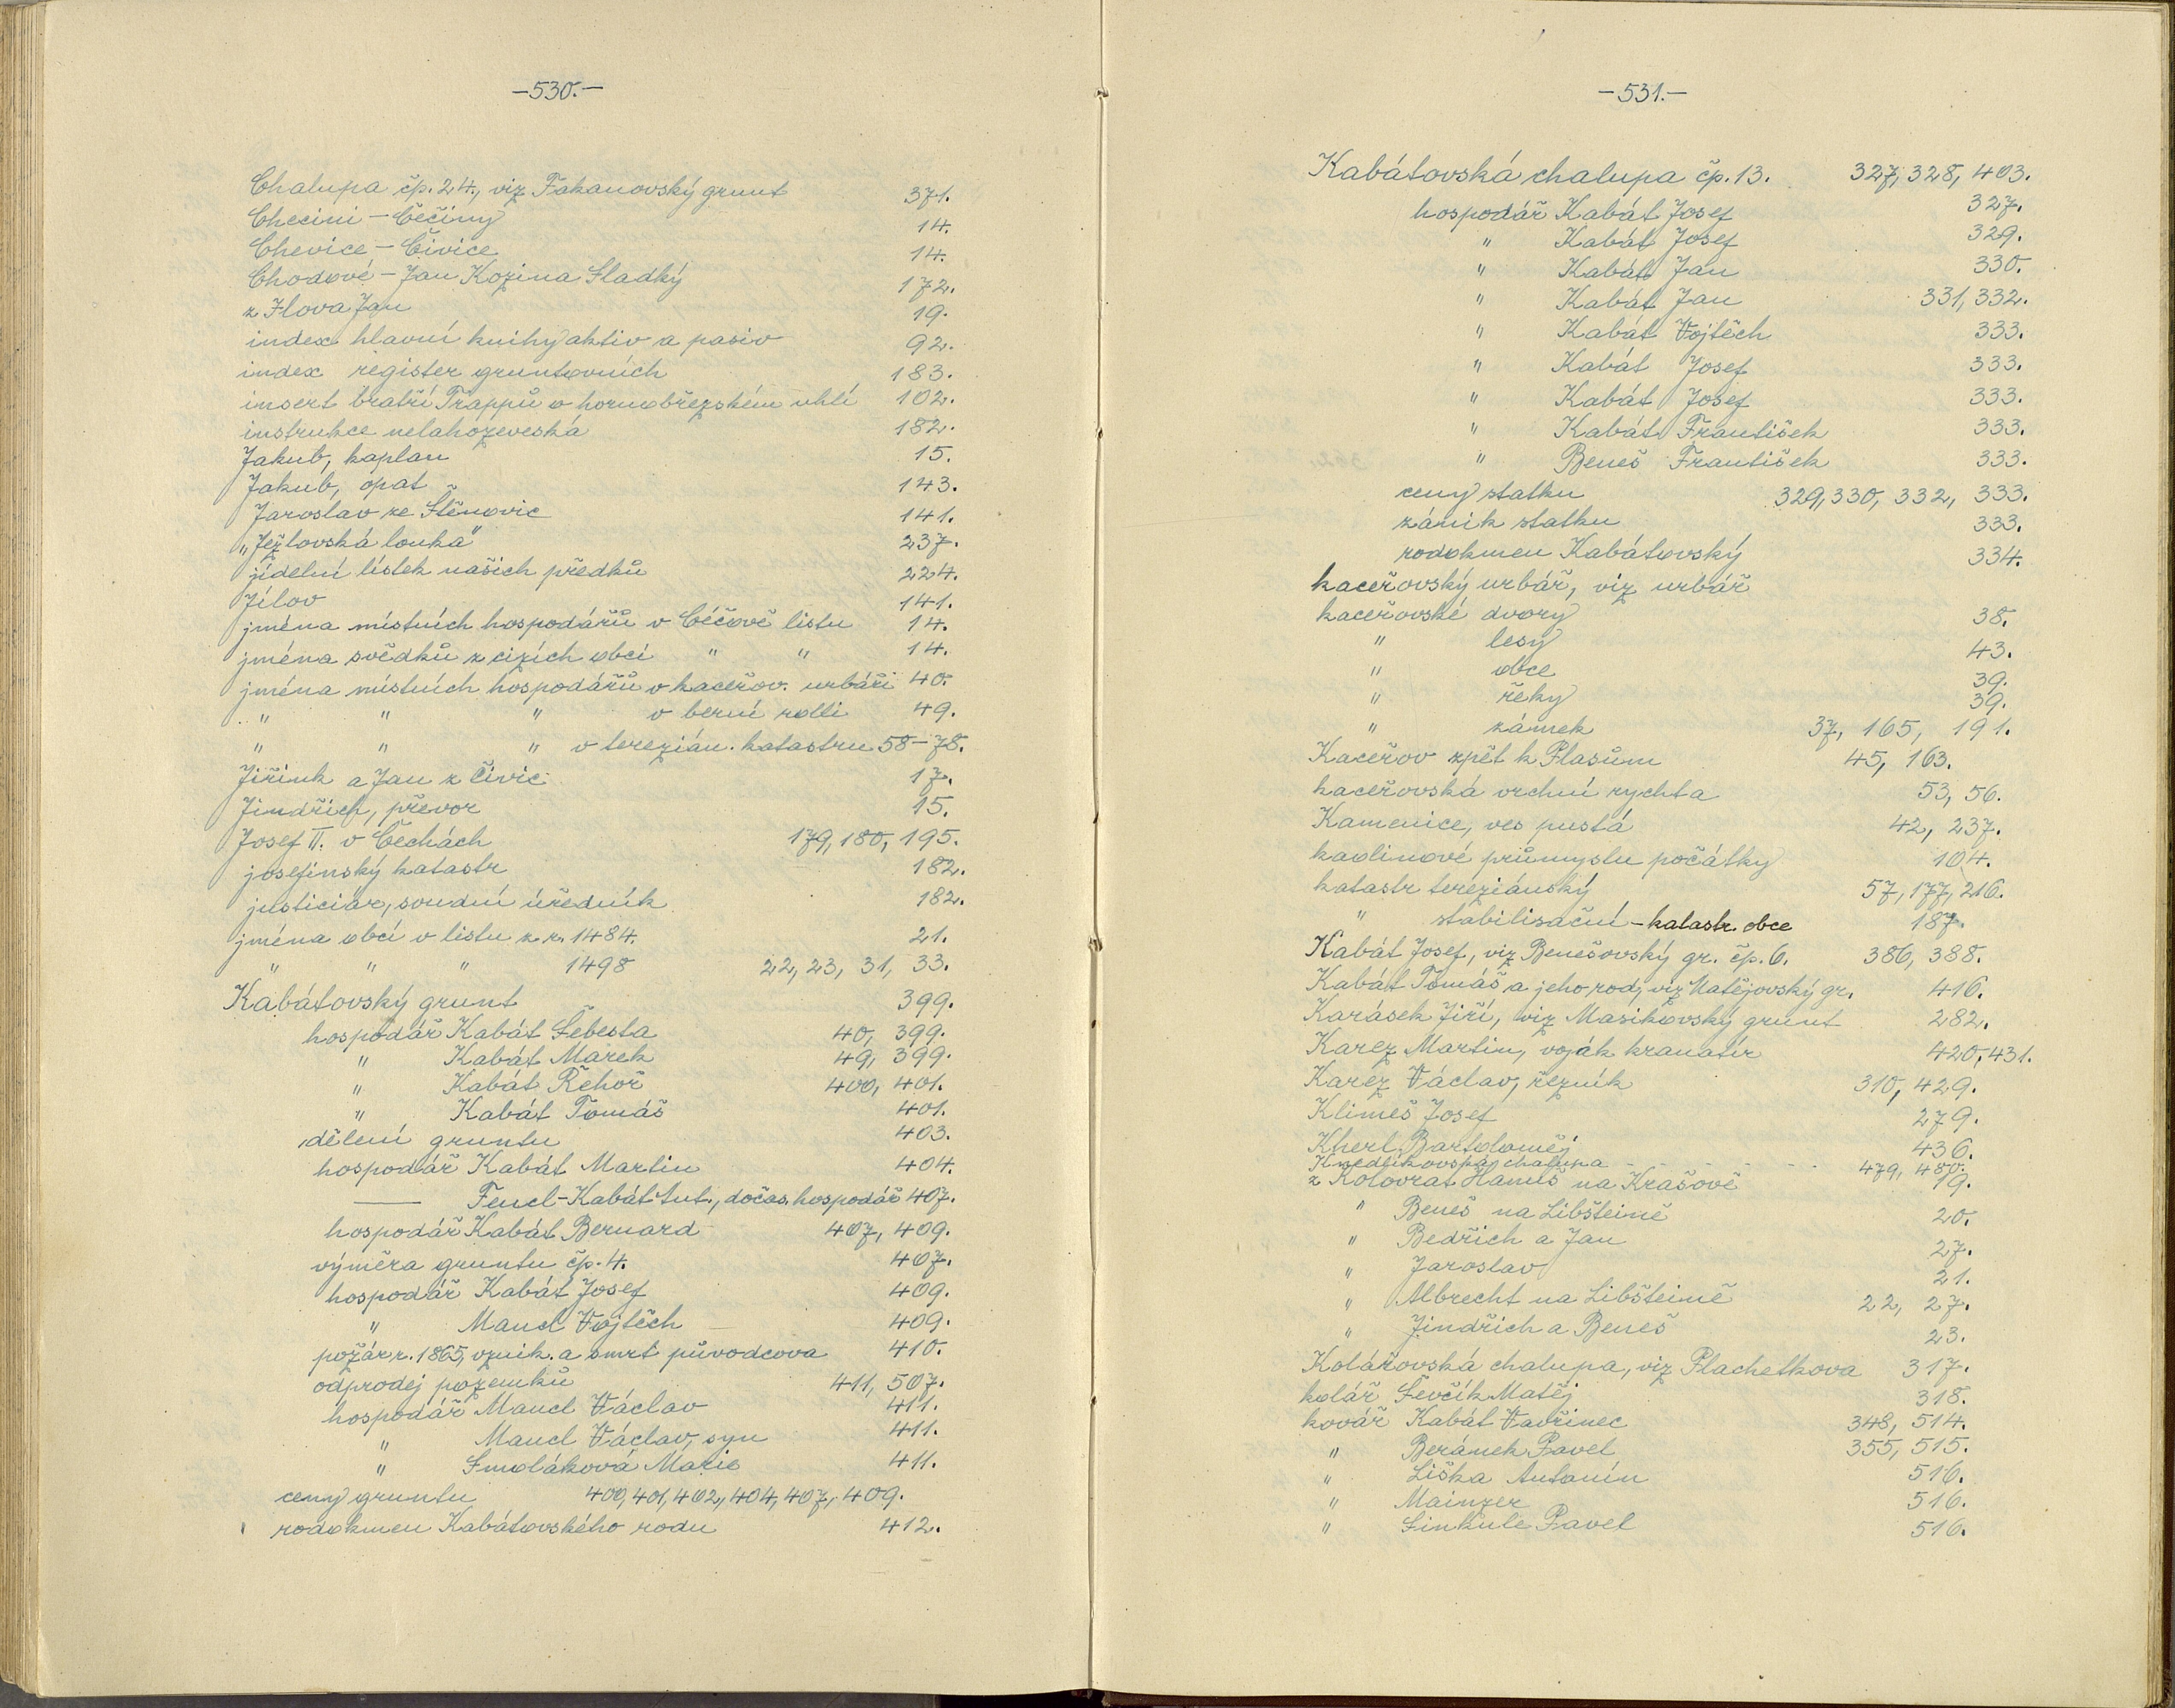 –530.–
Chalupa čp. 24., viz Fakanovský grunt 371.
Checini – Čečiny 14.
Chevice – Čivice 14.
Chodové – Jan Kozina Sladký 172.
z Ilova Jan 19.
index hlavní knihy aktiv a pasiv 92.
index register gruntovních 183.
insert bratří Trappů o hornobřezském uhlí 102.
instrukce nelahozeveská 182.
Jakub, kaplan 15.
Jakub, opat 143.
Jaroslav ze Štěnovic 141.
„Ježlovská louka" 237.
jídelní lístek našich předků 224.
Jílov 141.
jména místních hospodářů v Čéčově listu 14.
jména svědků z cizích obcí " " 14.
jména místních hospodářů v kaceřov. urbáři 40.
" " " v berní rolli 49.
" " " v terezián. katastru 58–78.
Jiřink a Jan z Čivic 17.
Jindřich, převor 15.
Josef II. v Čechách 179, 180, 195.
josefinský katastr 182.
justiciár, soudní úředník 182.
jména obcí v listu z r. 1484. 21.
" " " 1498 22, 23, 31, 33.
Kabátovský grunt 399.
hospodář Kabát Šebesta 40, 399.
" Kabát Marek 49, 399.
" Kabát Řehoř 400, 401.
" Kabát Tomáš 401.
dělení gruntu 403.
hospodář Kabát Martin 404.
— Fencl-Kabát Ant., dočas. hospodář 407.
hospodář Kabát Bernard 407, 409.
výměra gruntu čp. 4. 407.
hospodář Kabát Josef 409.
" Mancl Vojtěch 409.
požár r. 1865, vznik. a smrt původcova 410.
odprodej pozemků 411, 507.
hospodář Mancl Václav 411.
" Mancl Václav, syn 411.
" Smoláková Marie 411.
ceny gruntu 400, 401, 402, 404, 407, 409.
rodokmen Kabátovského rodu 412.
–531.–
Kabátovská chalupa čp. 13. 327, 328, 403.
hospodář Kabát Josef 327.
" Kabát Josef 329.
" Kabát Jan 330.
" Kabát Jan 331, 332.
" Kabát Vojtěch 333.
" Kabát Josef 333.
" Kabát Josef 333.
" Kabát František 333.
" Beneš František 333.
ceny statku 329, 330, 332, 333.
zánik statku 333.
rodokmen Kabátovský 334.
kaceřovský urbář, viz urbář
kaceřovské dvory 38.
" lesy 43.
" obce 39.
" řeky 39.
" zámek 37, 165, 191.
Kaceřov zpět k Plasům 45, 163.
kaceřovská vrchní rychta 53, 56.
Kamenice, ves pustá 42, 237.
kaolinové průmyslu počátky 104.
katastr tereziánský 57, 177, 216.
" stabilisační – katastr. obce 187.
Kabát Josef, viz Benešovský gr. čp. 6. 386, 388.
Kabát Tomáš a jeho rod, viz Matějovský gr. 416.
Karásek Jiří, viz Masikovský grunt 282.
Karez Martin, voják kranatír 420, 431.
Karez Václav, řezník 310, 429.
Klimeš Josef 279.
Kherl Bartoloměj 436.
Knedlíkovská chalupa 479, 480.
z Kolovrat Hanuš na Krašově 19.
" Beneš na Libšteině 20.
" Bedřich a Jan 27.
" Jaroslav 21.
" Albrecht na Libšteině 22, 27.
" Jindřich a Beneš 23.
Kolářovská chalupa, viz Plachetkova 317.
kolář Ševčík Matěj 318.
kovář Kabát Vavřinec 348, 514.
" Beránek Pavel 355, 515.
" Liška Antonín 516.
" Mainzer 516.
" Sinkule Pavel 516.